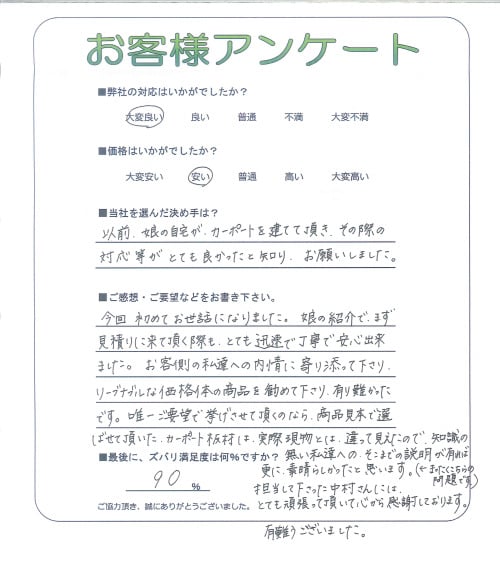 お客様アンケート
■弊社の対応はいかがでしたか？
大変良い 良い 普通 不満 大変不満
■価格はいかがでしたか？
大変安い 安い 普通 高い 大変高い
■当社を選んだ決め手は？
以前、娘の自宅が、カーポートを建てて頂き、その際の
対応等がとても良かったと知り、お願いしました。
■ご感想・ご要望などをお書き下さい。
今回初めてお世話になりました。娘の紹介で、まず
見積りに来て頂く際も、とても迅速で丁寧で安心出来
ました。お客側の私達への内情に寄り添って下さり、
リーブナブルな価格体の商品を勧めて下さり、有り難かった
です。唯一ご要望で挙げさせて頂くのなら、商品見本で選
ばせて頂いた、カーポート板材は、実際現物とは、違って見えたので、知識の
無い私達への、そこまでの説明が有れば
更に、素晴らしかったと思います。(←まったくこちらの
問題です)
■最後に、ズバリ満足度は何%ですか？
90 %
担当して下さった中村さんには、
とても頑張って頂いて心から感謝しております。
有難うございました。
ご協力頂き、誠にありがとうございました。